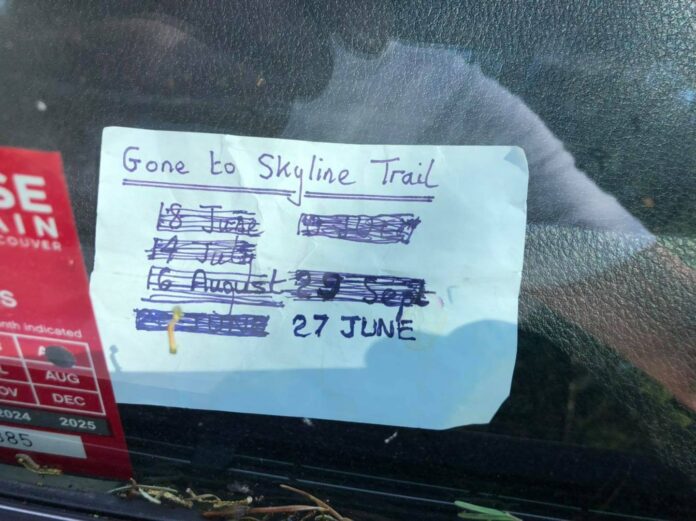 SE
AIN
COUVER
S
onth indicated
AUG
OV DEC
2024 2025
385
Gone to Skyline Trail
18 June
14 July
16 August 29 Sept
27 JUNE